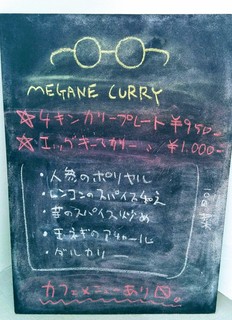 MEGANE CURRY
☆チキンカリープレート ¥950-
☆エッグキーマカリー 〃 ¥1.000-
・人参のポリヤル
・レンコンのスパイス和え
・苺のスパイス炒め
・玉ネギのアチャール
・ダルカリー
カフェメニューあり〼